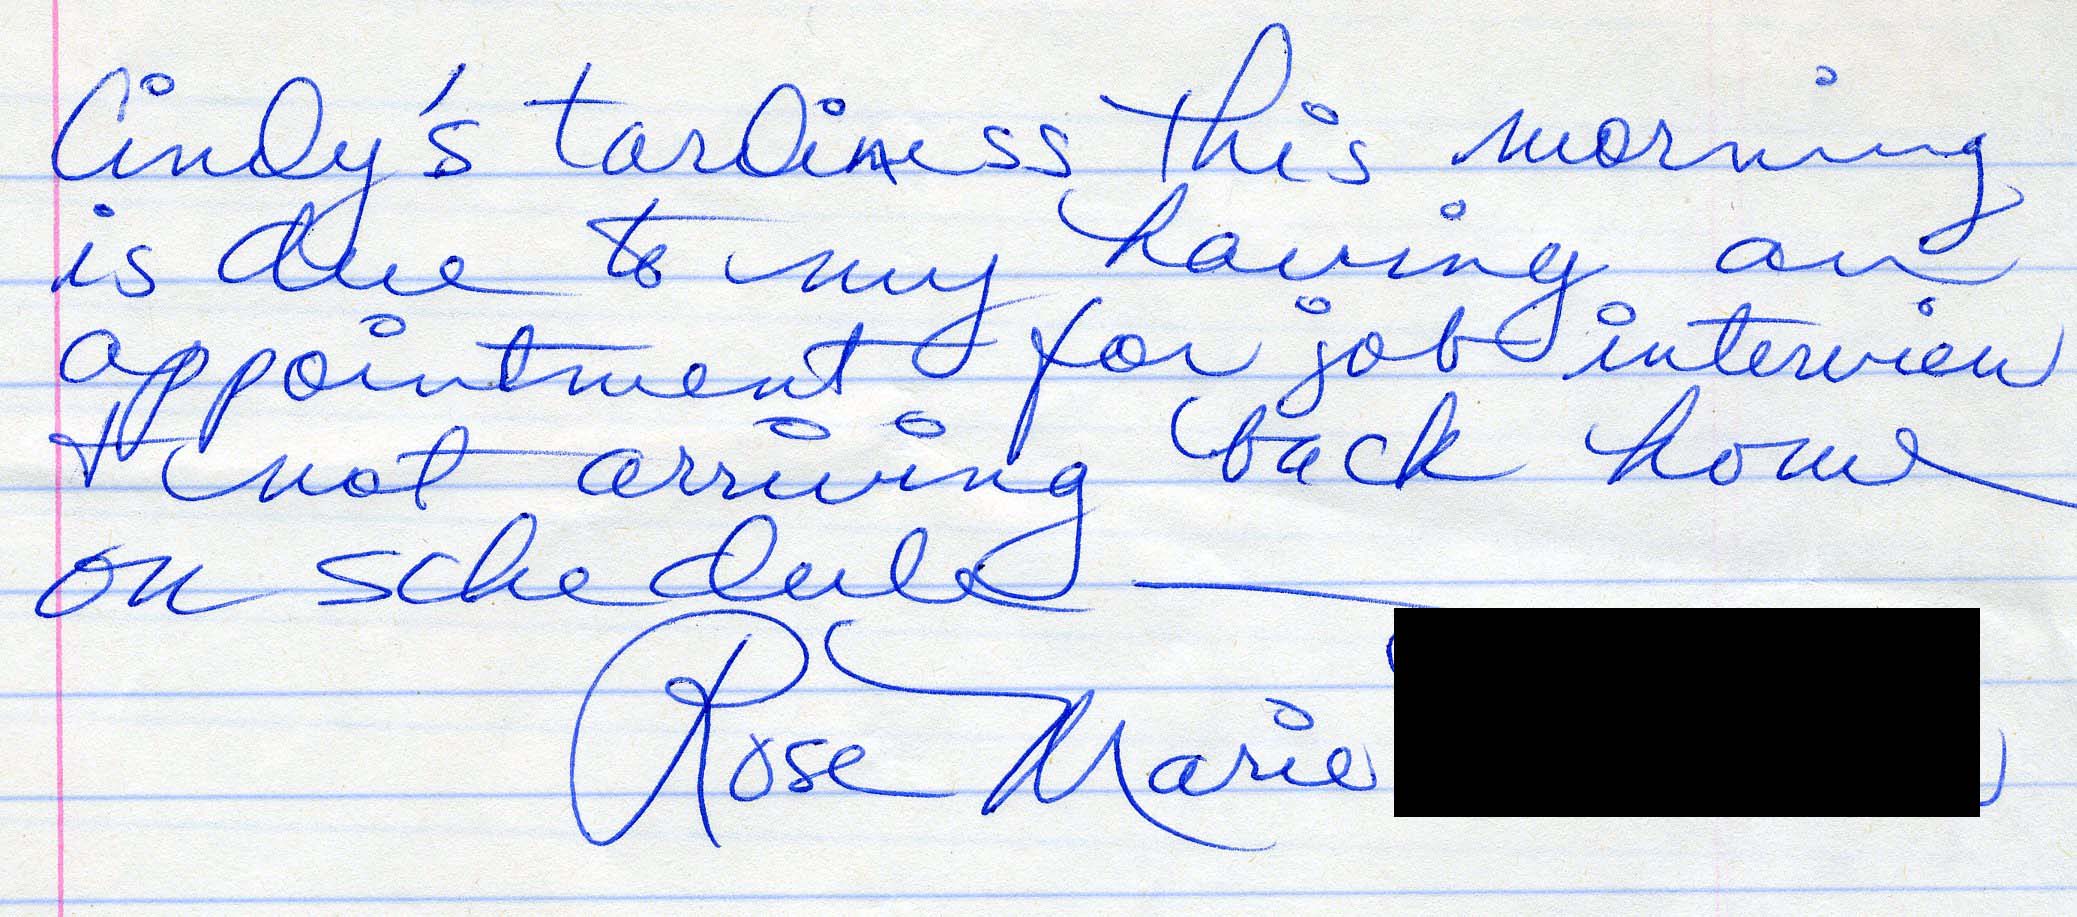 Cindy's tardiness this morning
is due to my having an
appointment for job interview
& not arriving back home
on schedule —
Rose Marie